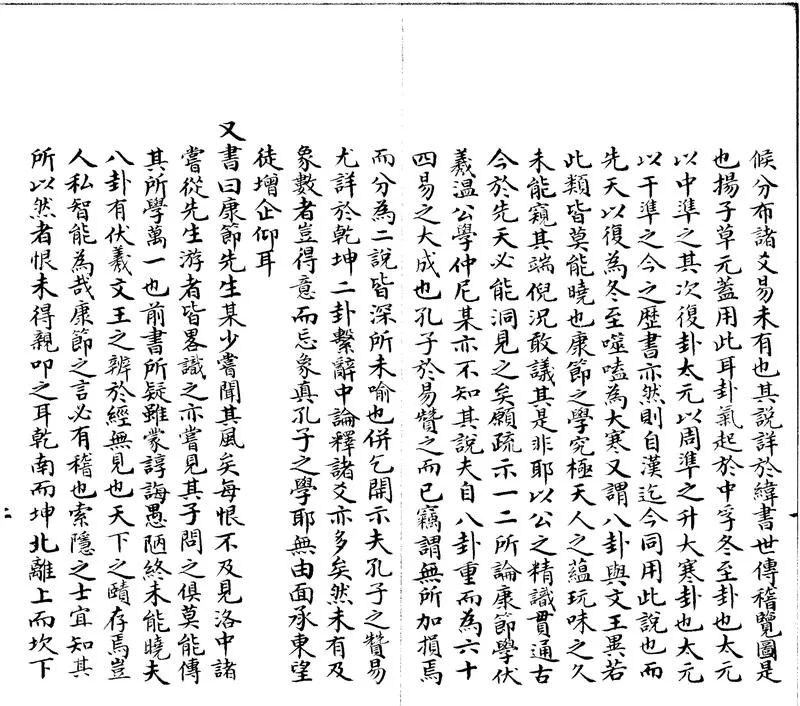 候分布諸爻易未有也其說詳於緯書世傳稽覽圖是
也揚子草元蓋用此耳卦氣起於中孚冬至卦也太元
以中準之其次復卦太元以周準之升大寒卦也太元
以干準之今之歴書亦然則自漢迄今同用此說也而
先天以復為冬至噬嗑為大寒又謂八卦與文王異若
此類皆莫能曉也康節之學究極天人之蘊玩味之久
未能窺其端倪況敢議其是非耶以公之精識貫通古
今於先天必能洞見之矣願疏示一二所論康節學伏
羲溫公學仲尼某亦不知其說夫自八卦重而為六十
四易之大成也孔子於易贊之而已竊謂無所加損焉
而分為二說皆深所未喻也併乞開示夫孔子之贊易
尤詳於乾坤二卦繫辭中論釋諸爻亦多矣然未有及
象數者豈得意而忘象真孔子之學耶無由面承東望
徒增企仰耳
又書曰康節先生某少嘗聞其風矣每恨不及見洛中諸
嘗從先生游者皆畧識之亦嘗見其子問之俱莫能傳
其所學萬一也前書所疑雖蒙諄誨愚陋終未能曉夫
八卦有伏羲文王之辨於經無見也天下之賾存焉豈
人私智能為哉康節之言必有稽也索隱之士宜知其
所以然者恨未得親叩之耳乾南而坤北離上而坎下